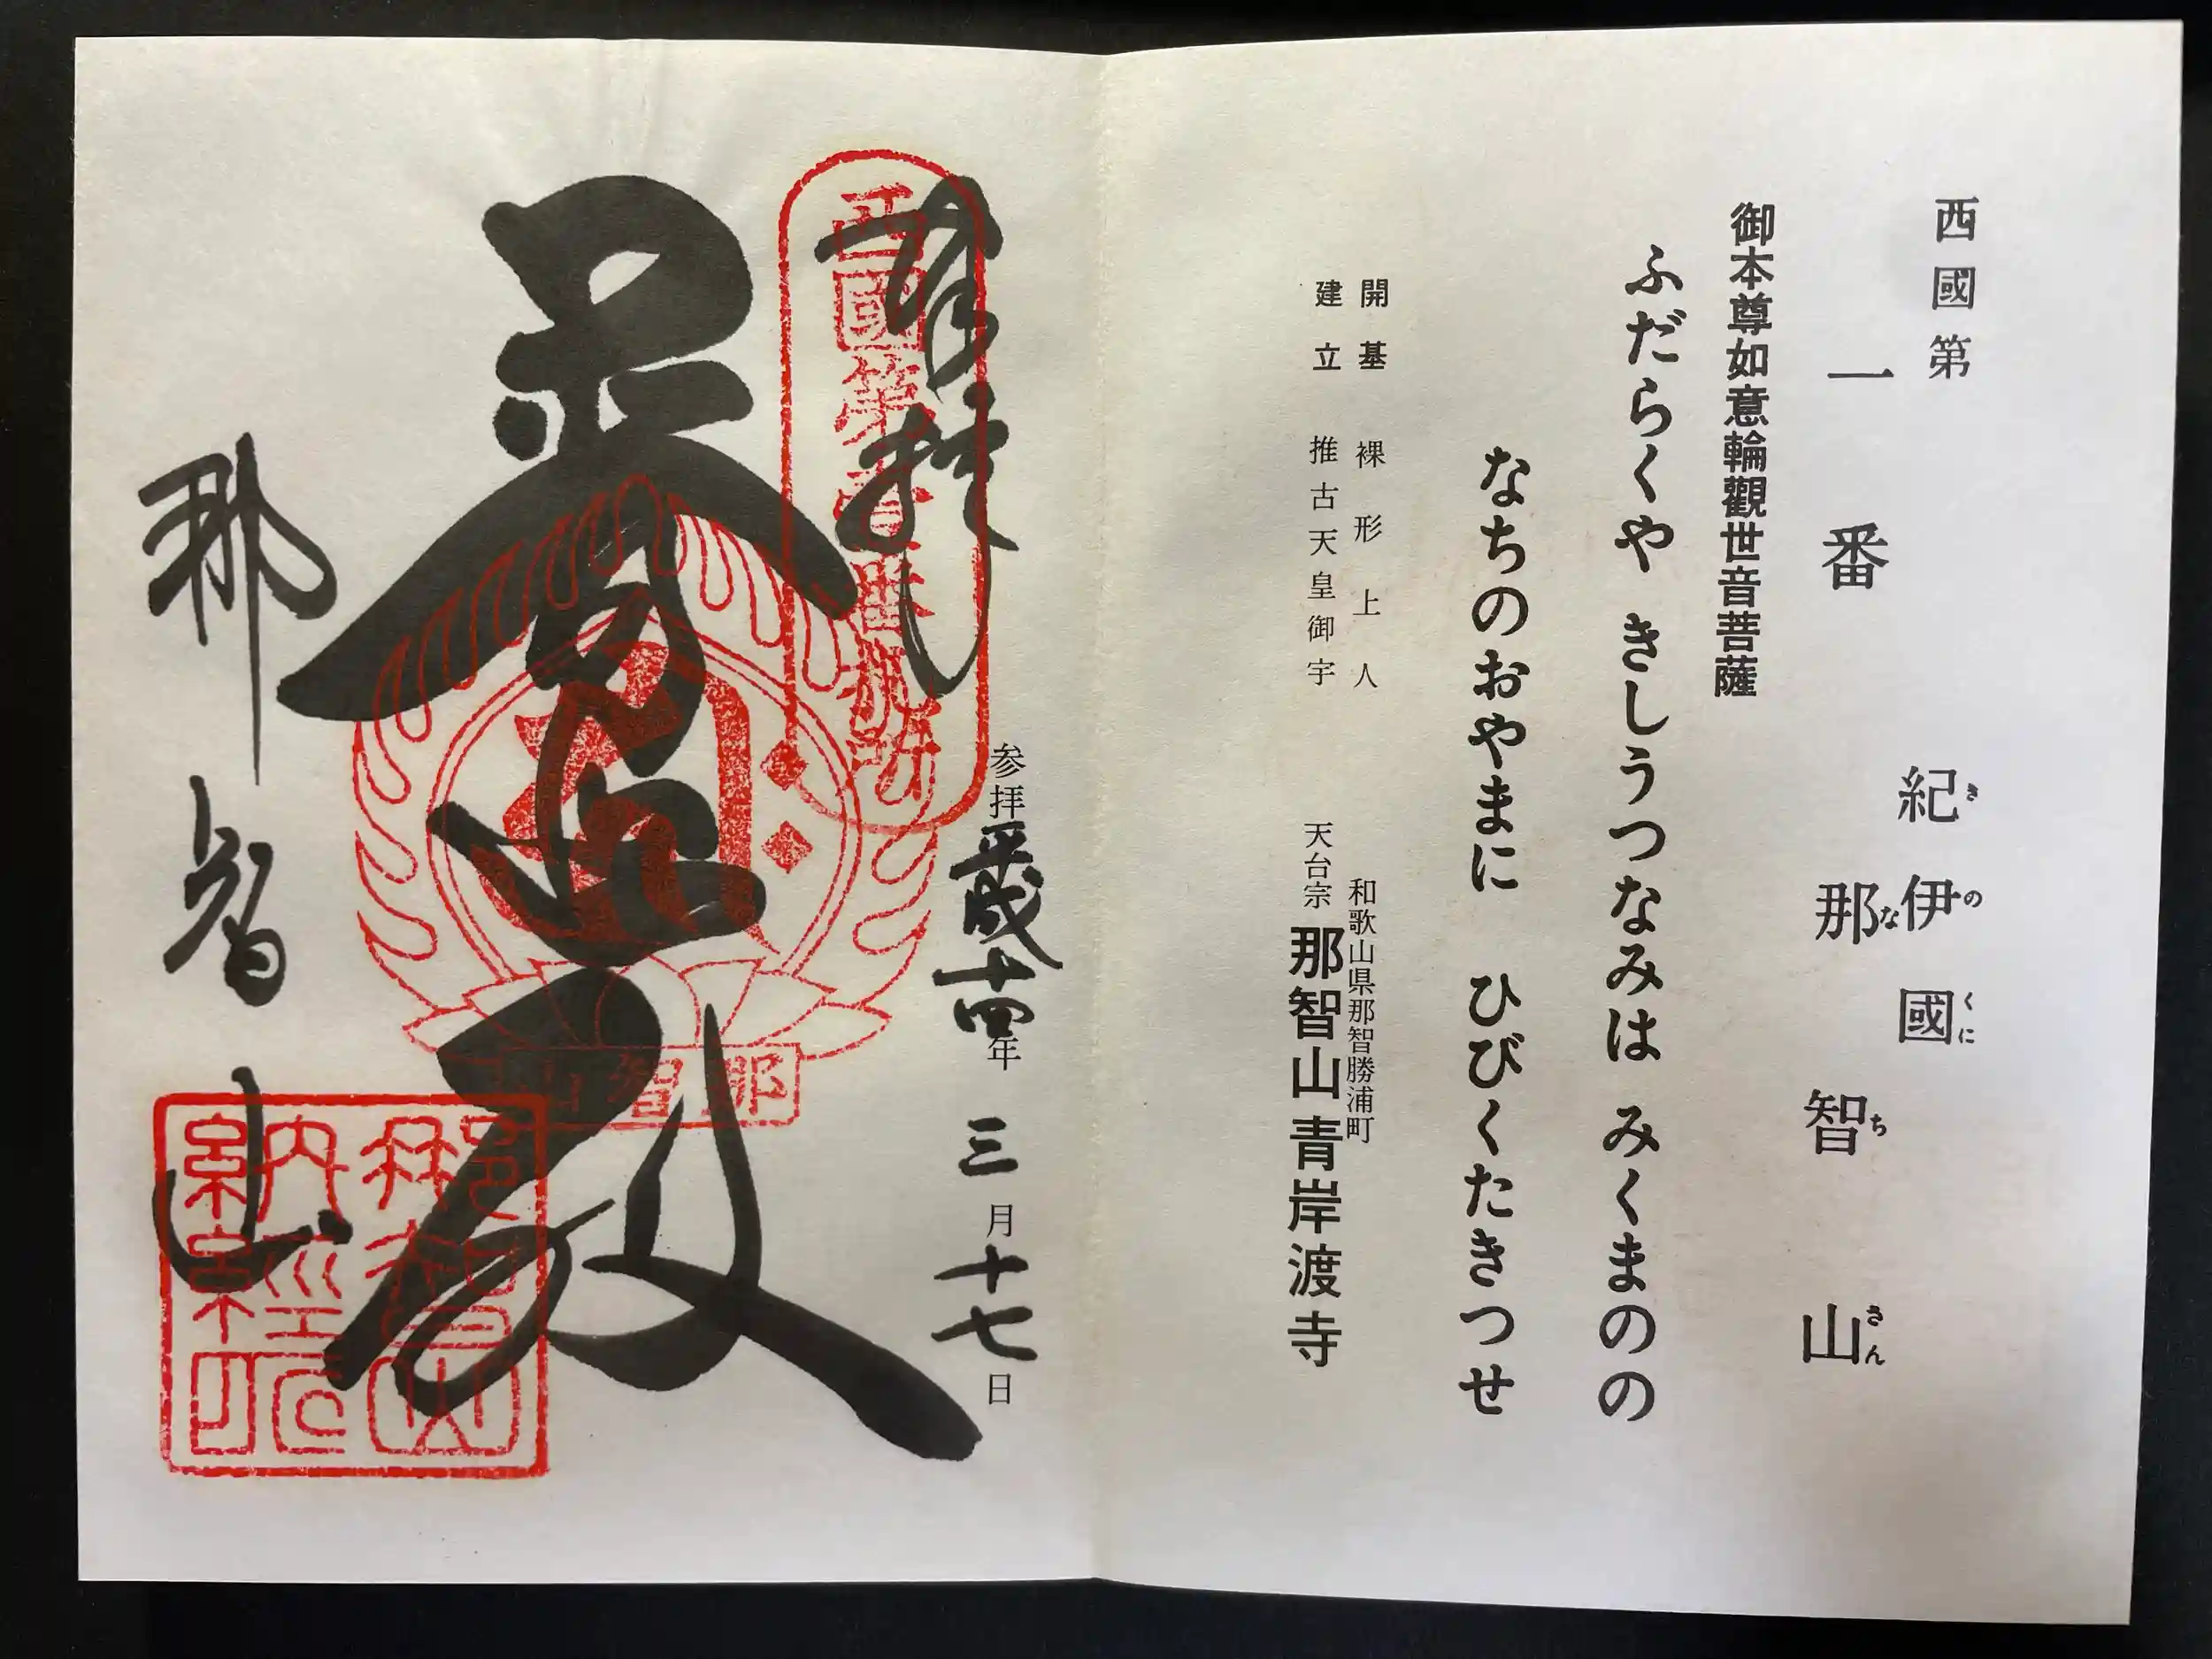 西國第
一番
紀伊國
きのくに
那智山
なちさん
御本尊如意輪觀世音菩薩
ふだらくや きしうつなみは みくまのの
なちのおやまに ひびくたきつせ
開基 裸形上人
建立 推古天皇御宇
和歌山県那智勝浦町
天台宗 那智山青岸渡寺
奉拝
西國第壹番札所
参拝平成十四年三月十七日
普照殿
那智山
那智山
那智山納經印